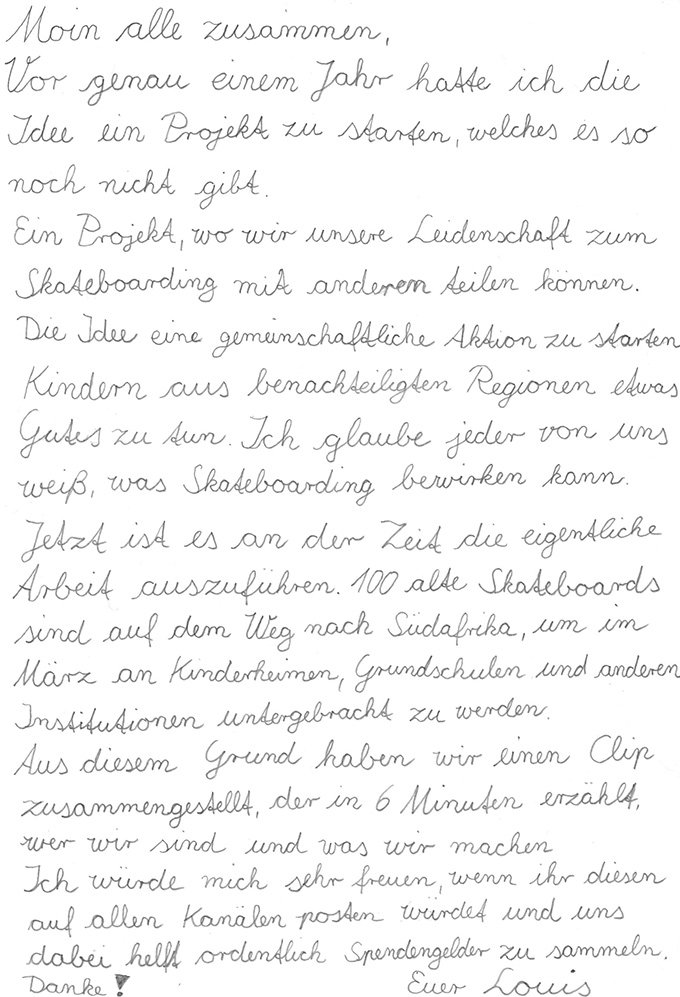 Moin alle zusammen,
Vor genau einem Jahr hatte ich die
Idee ein Projekt zu starten, welches es so
noch nicht gibt.
Ein Projekt, wo wir unsere Leidenschaft zum
Skateboarding mit anderen teilen können.
Die Idee eine gemeinschaftliche Aktion zu starten
Kindern aus benachteiligten Regionen etwas
Gutes zu tun. Ich glaube jeder von uns
weiß, was Skateboarding bewirken kann.
Jetzt ist es an der Zeit die eigentliche
Arbeit auszuführen. 100 alte Skateboards
sind auf dem Weg nach Südafrika, um im
März an Kinderheimen, Grundschulen und anderen
Institutionen untergebracht zu werden.
Aus diesem Grund haben wir einen Clip
zusammengestellt, der in 6 Minuten erzählt,
wer wir sind und was wir machen
Ich würde mich sehr freuen, wenn ihr diesen
auf allen Kanälen posten würdet und uns
dabei helft ordentlich Spendengelder zu sammeln.
Danke! Euer Louis